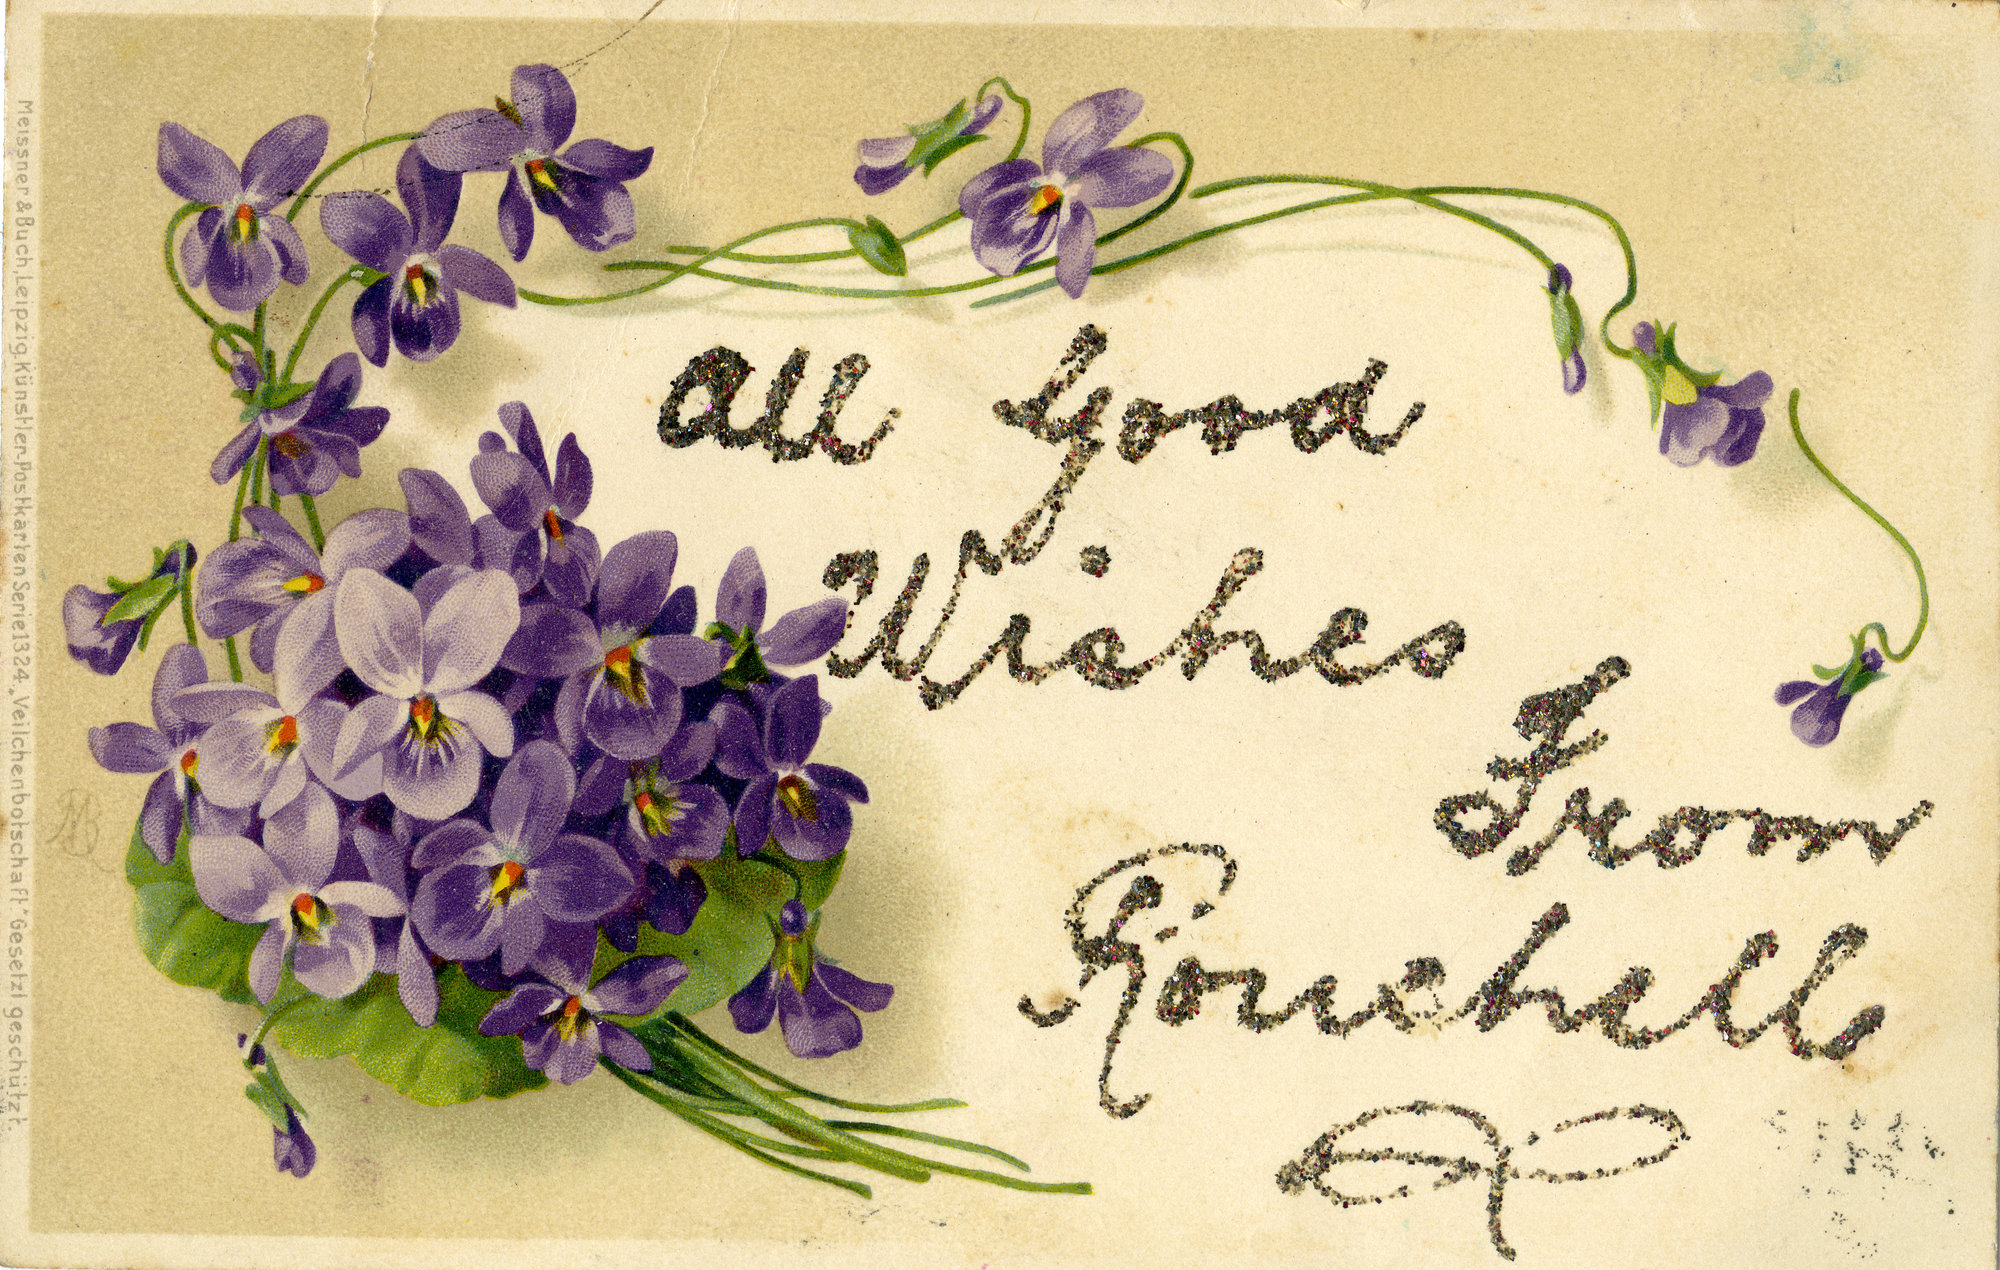 All Good
Wishes
From
Rouchell
Meissner & Buch, Leipzig. Künstler-Postkarten Serie 1324. „Veilchenbotschaft" Gesetzl geschützt.
MB